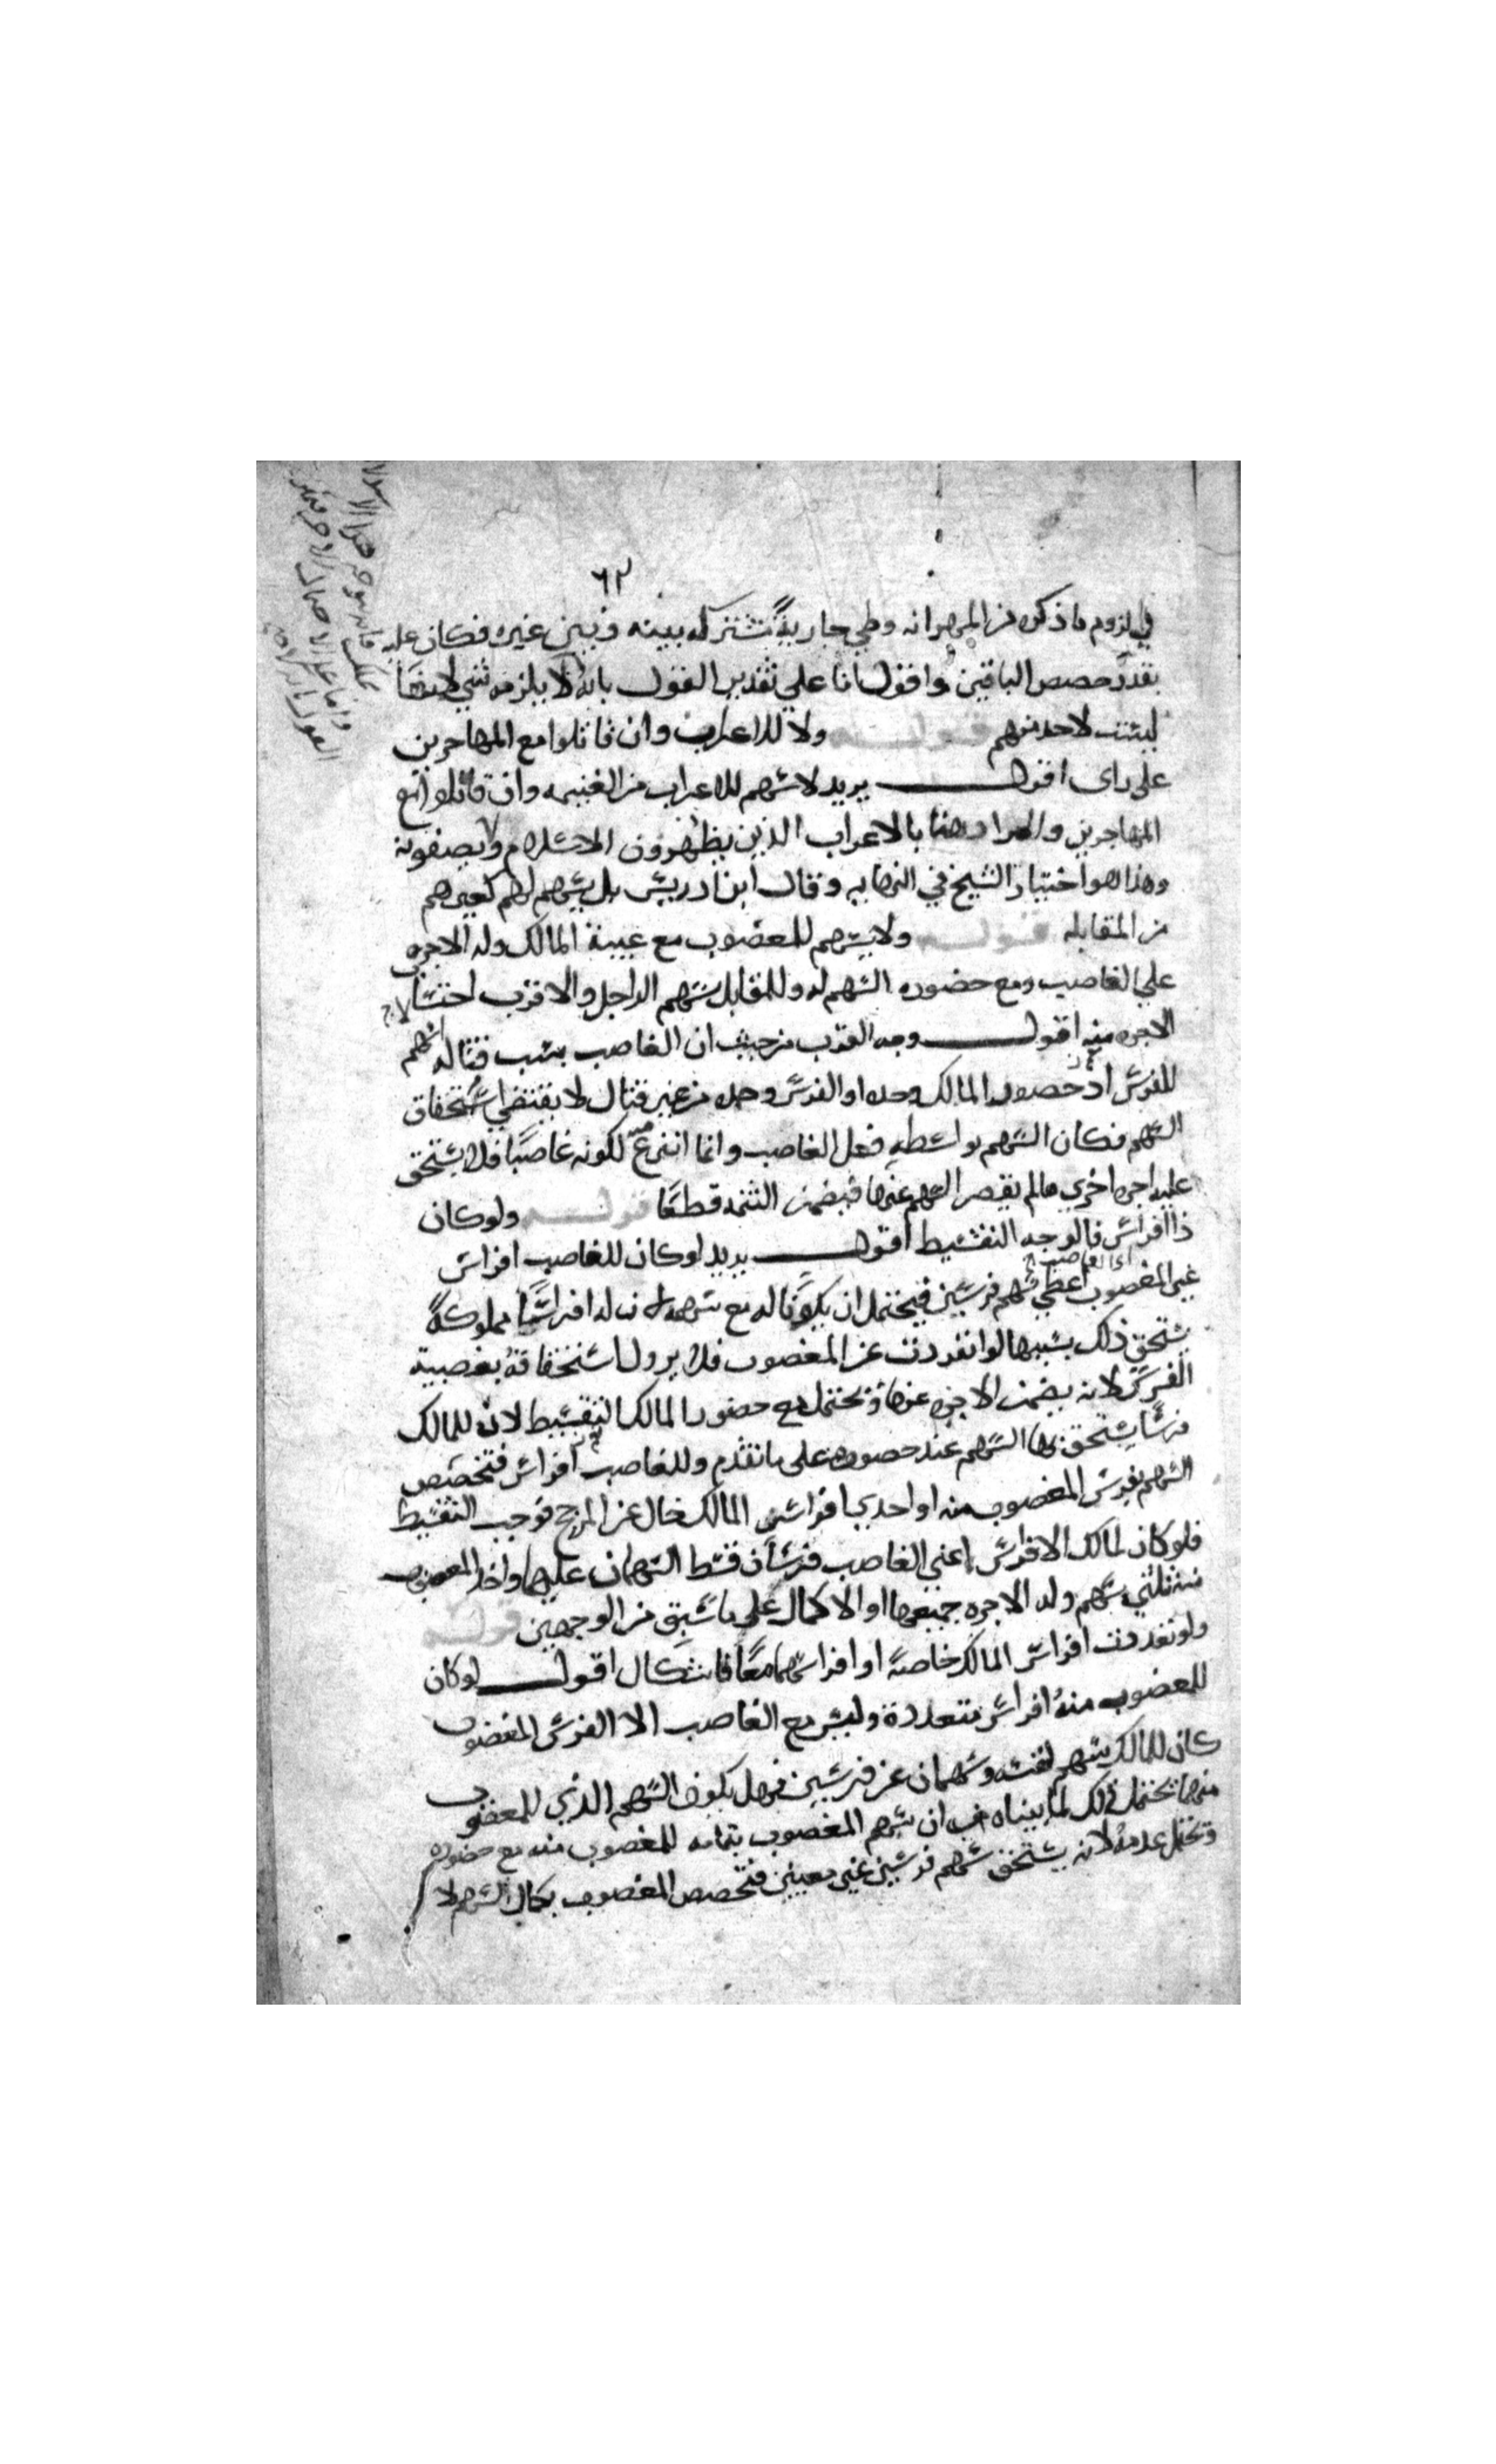 ٦٢
في لزوم ما ذكره من المهر انه وطي جارية مشتركه بينه و بين غيره فكان عليه
بقدر حصص الباقين واقول انا علي تقدير القول بانه لا يلزمه شي لانها
ليست لاحد منهم قولــه ولا للاعراب وان قاتلوا مع المهاجرين
على راى اقول يريد لا سهم للاعراب من الغنيمه وان قاتلوا مع
المهاجرين والمراد هنا بالاعراب الذين يظهرون الاسلام ولا يصفونه
وهذا هو اختيار الشيخ في النهايه وقال ابن ادريس بل يسهم لهم كغيرهم
من المقابله قولــه ولا يسهم للمغصوب مع غيبة المالك وله الاجره
علي الغاصب ومع حضوره السهم له وللمقابل سهم الراجل والاقرب احتساب
الاجره منه اقول وجه القرب من حيث ان الغاصب بسبب قتاله اسهم
للفرس اذ حضور المالك وحده او الفرس وحده من غير قتال لا يقتضي استحقاق
السهم فكان السهم بواسطه فعل الغاصب وانما انتزع منه لكونه غاصبا فلا يستحق
عليه اجره اخري مالم يقصر السهم عنها فيضمن التتمه قطعا قولــه ولو كان
ذا افراس فالوجه التقسيط اقول يريد لو كان للغاصب افراس
غير المغصوب اعطي اى الغاصب سهم فرسين فيحتمل ان يكونا له مع سهمه لان له افراسا مملوكة
يستحق ذلك بسببها لو انفردت عن المغصوب فلا يزول استحقاقه بغصبية
الفرس لانه يضمن الاجره عنها و يحتمل مع حضور المالك التقسيط لان للمالك
فرسا يستحق بها السهم عند حضوره على ما تقدم وللغاصب افراس فتخصيص
السهم بفرس المغصوب منه او احدي افراس المالك خال عن المرجح فوجب التقسيط
فلو كان لمالك الافراس اعني الغاصب فرسان قسط السهمان عليها واخذ المغصوب
منه ثلثي سهم وله الاجره جميعها او الاكمال على ما سبق من الوجهين قولــه
ولو تعددت افراس المالك خاصة او افراسهما معا فاشكال اقول لو كان
للمغصوب منه افراس متعددة وليس مع الغاصب الا الفرس المغصوب
كان للمالك سهم لنفسه وسهمان عن فرسين فهل يكون السهم الذي للمغصوب
منهما يحتمل ذلك لما بيناه من ان سهم المغصوب بتمامه للمغصوب منه مع حضوره
ويحتمل عدمه لانه يستحق سهم فرسين غير معينين فتخصص المغصوب بكمال السهم لا